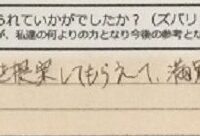 られていかがでしたか？（ズバリ
が、私達の何よりの力となり今後の参考とな
を提案してもらえて、満